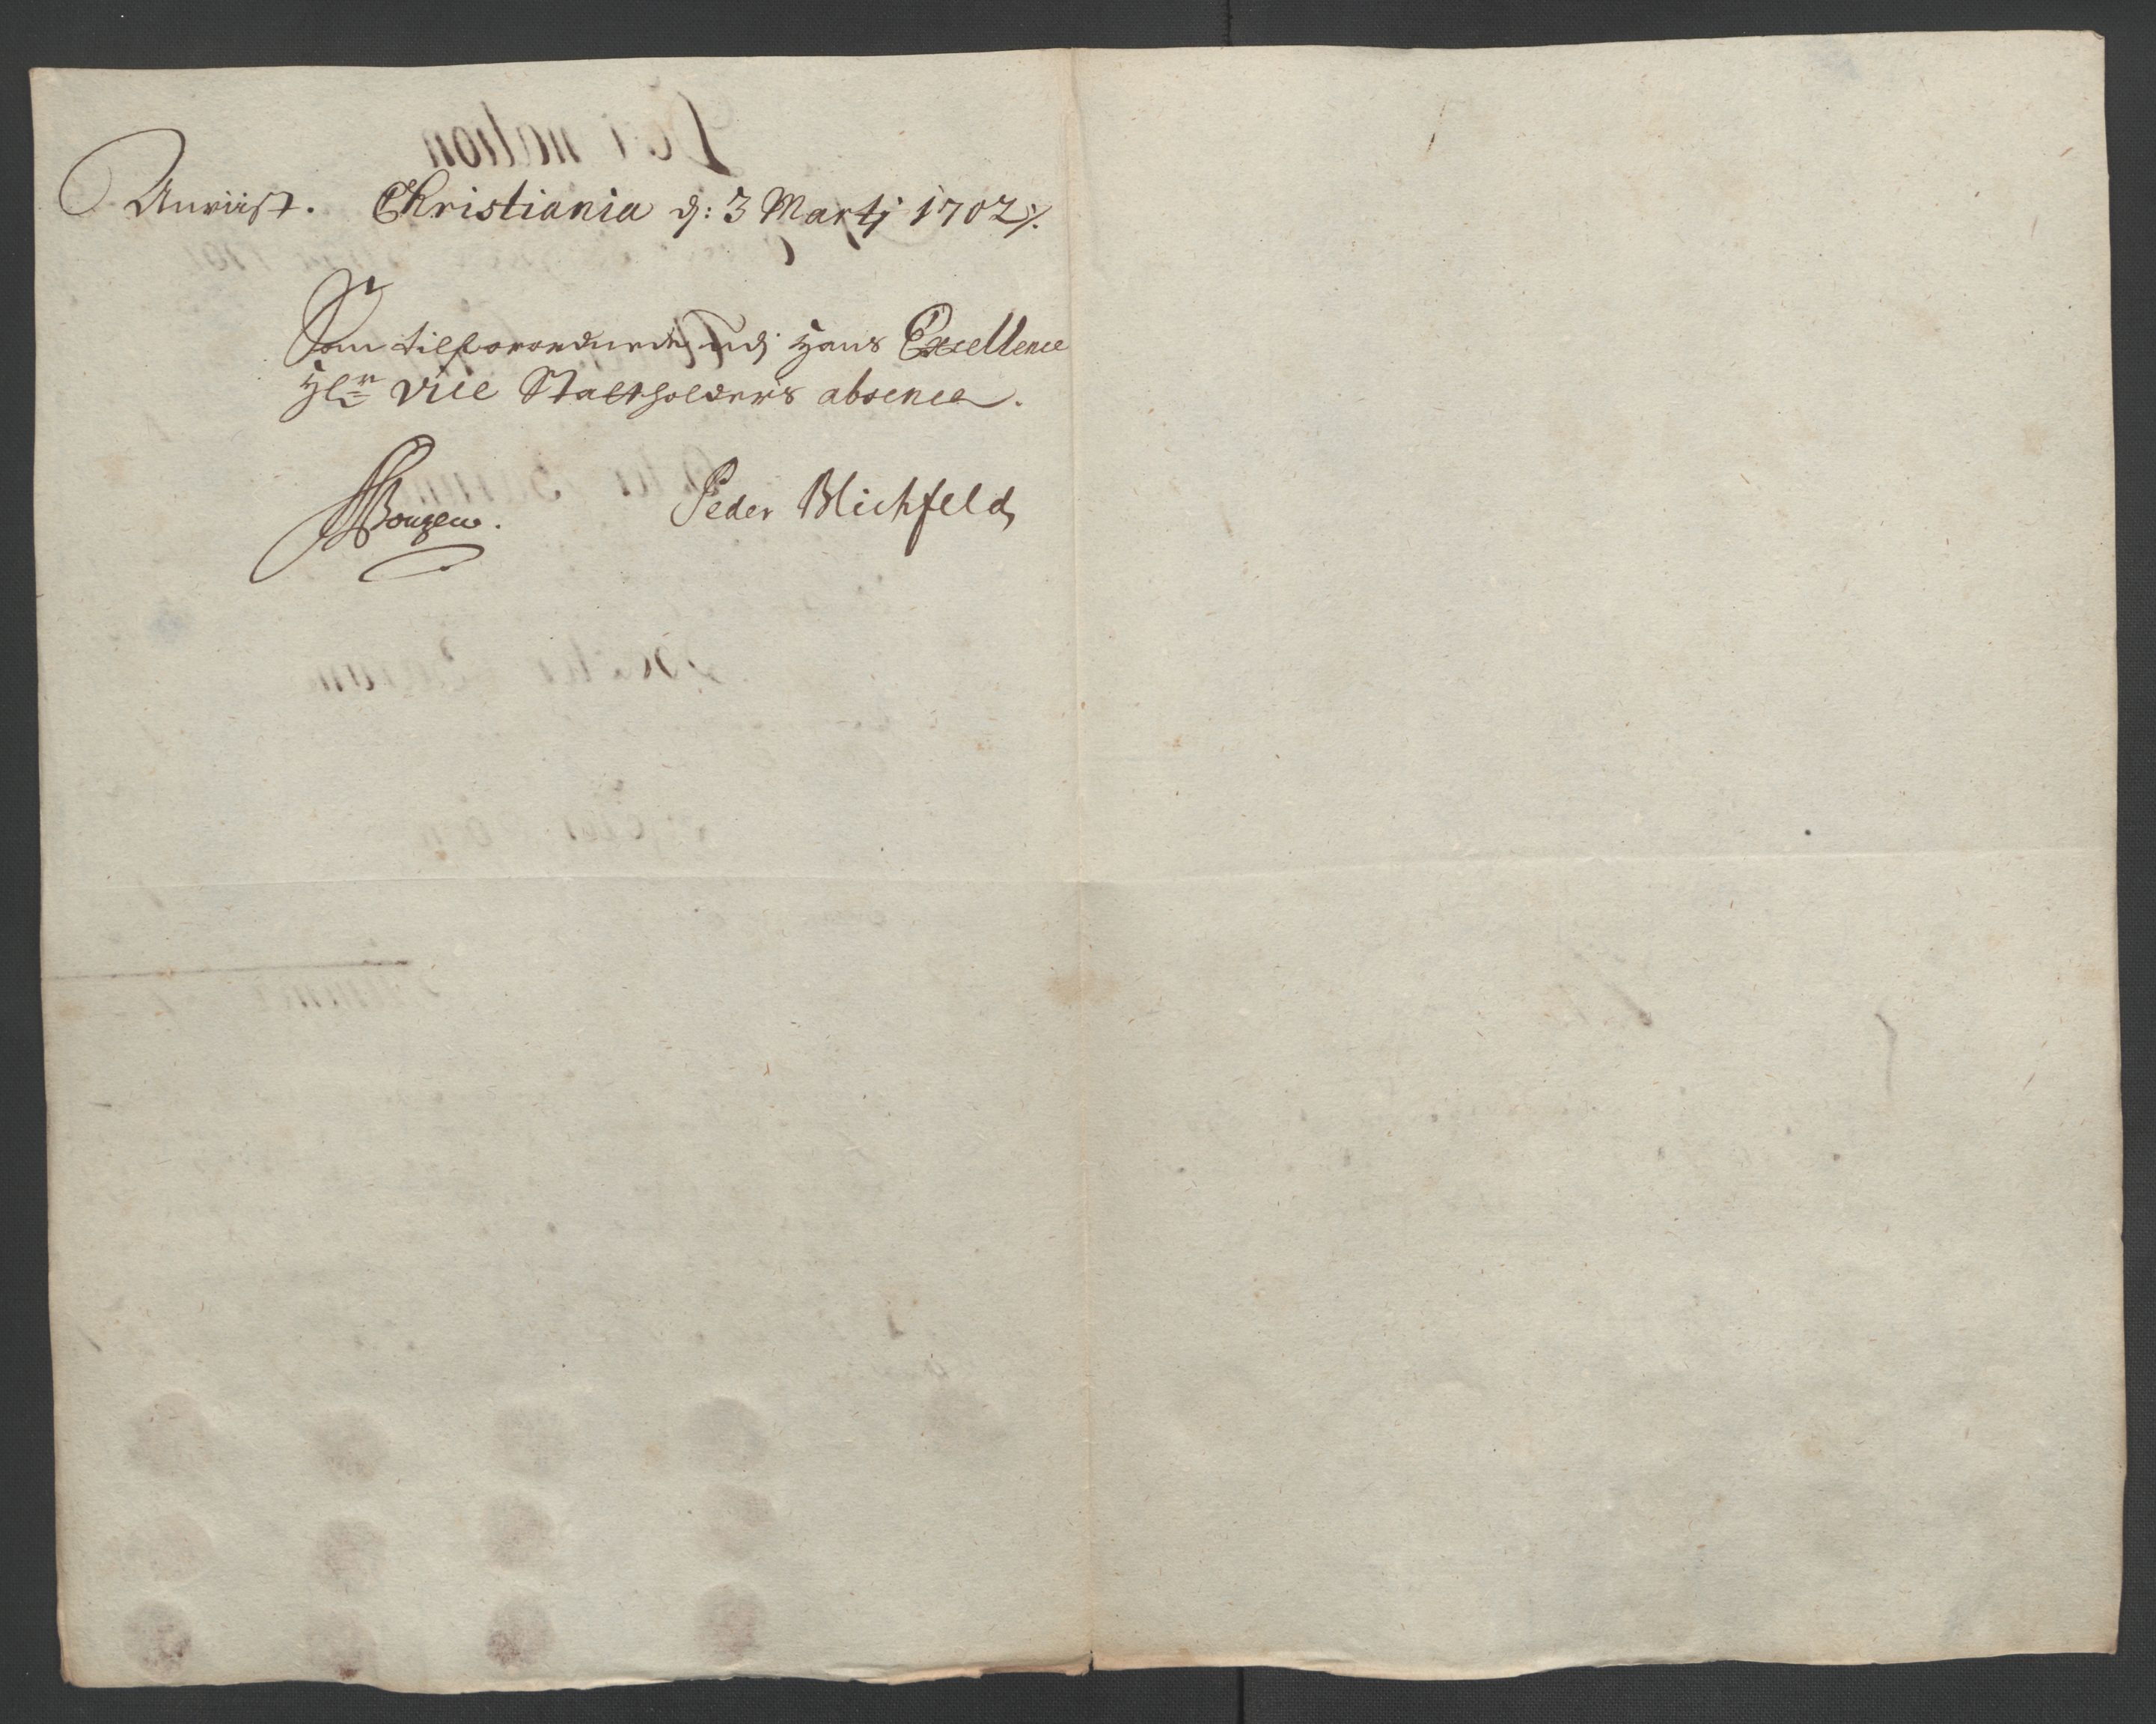 Anviist. Christiania d: 3 Martj 1702 ⁒.
Som tilforordnede udj Hans Excellence
Hr. Vice Statholders absence.
Peder Blichfeld